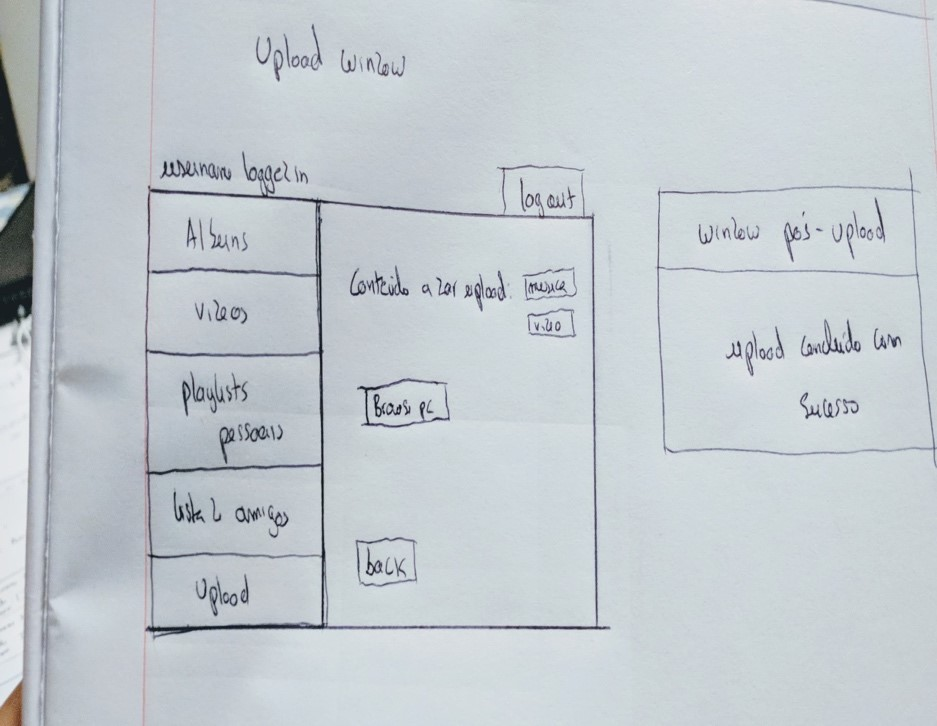 Upload window
username logged in
log out
Albuns
videos
playlists
pessoais
lista d amigos
Upload
Conteúdo a dar upload:
musica
video
Browse pc
back
window pós-upload
upload concluido com
sucesso